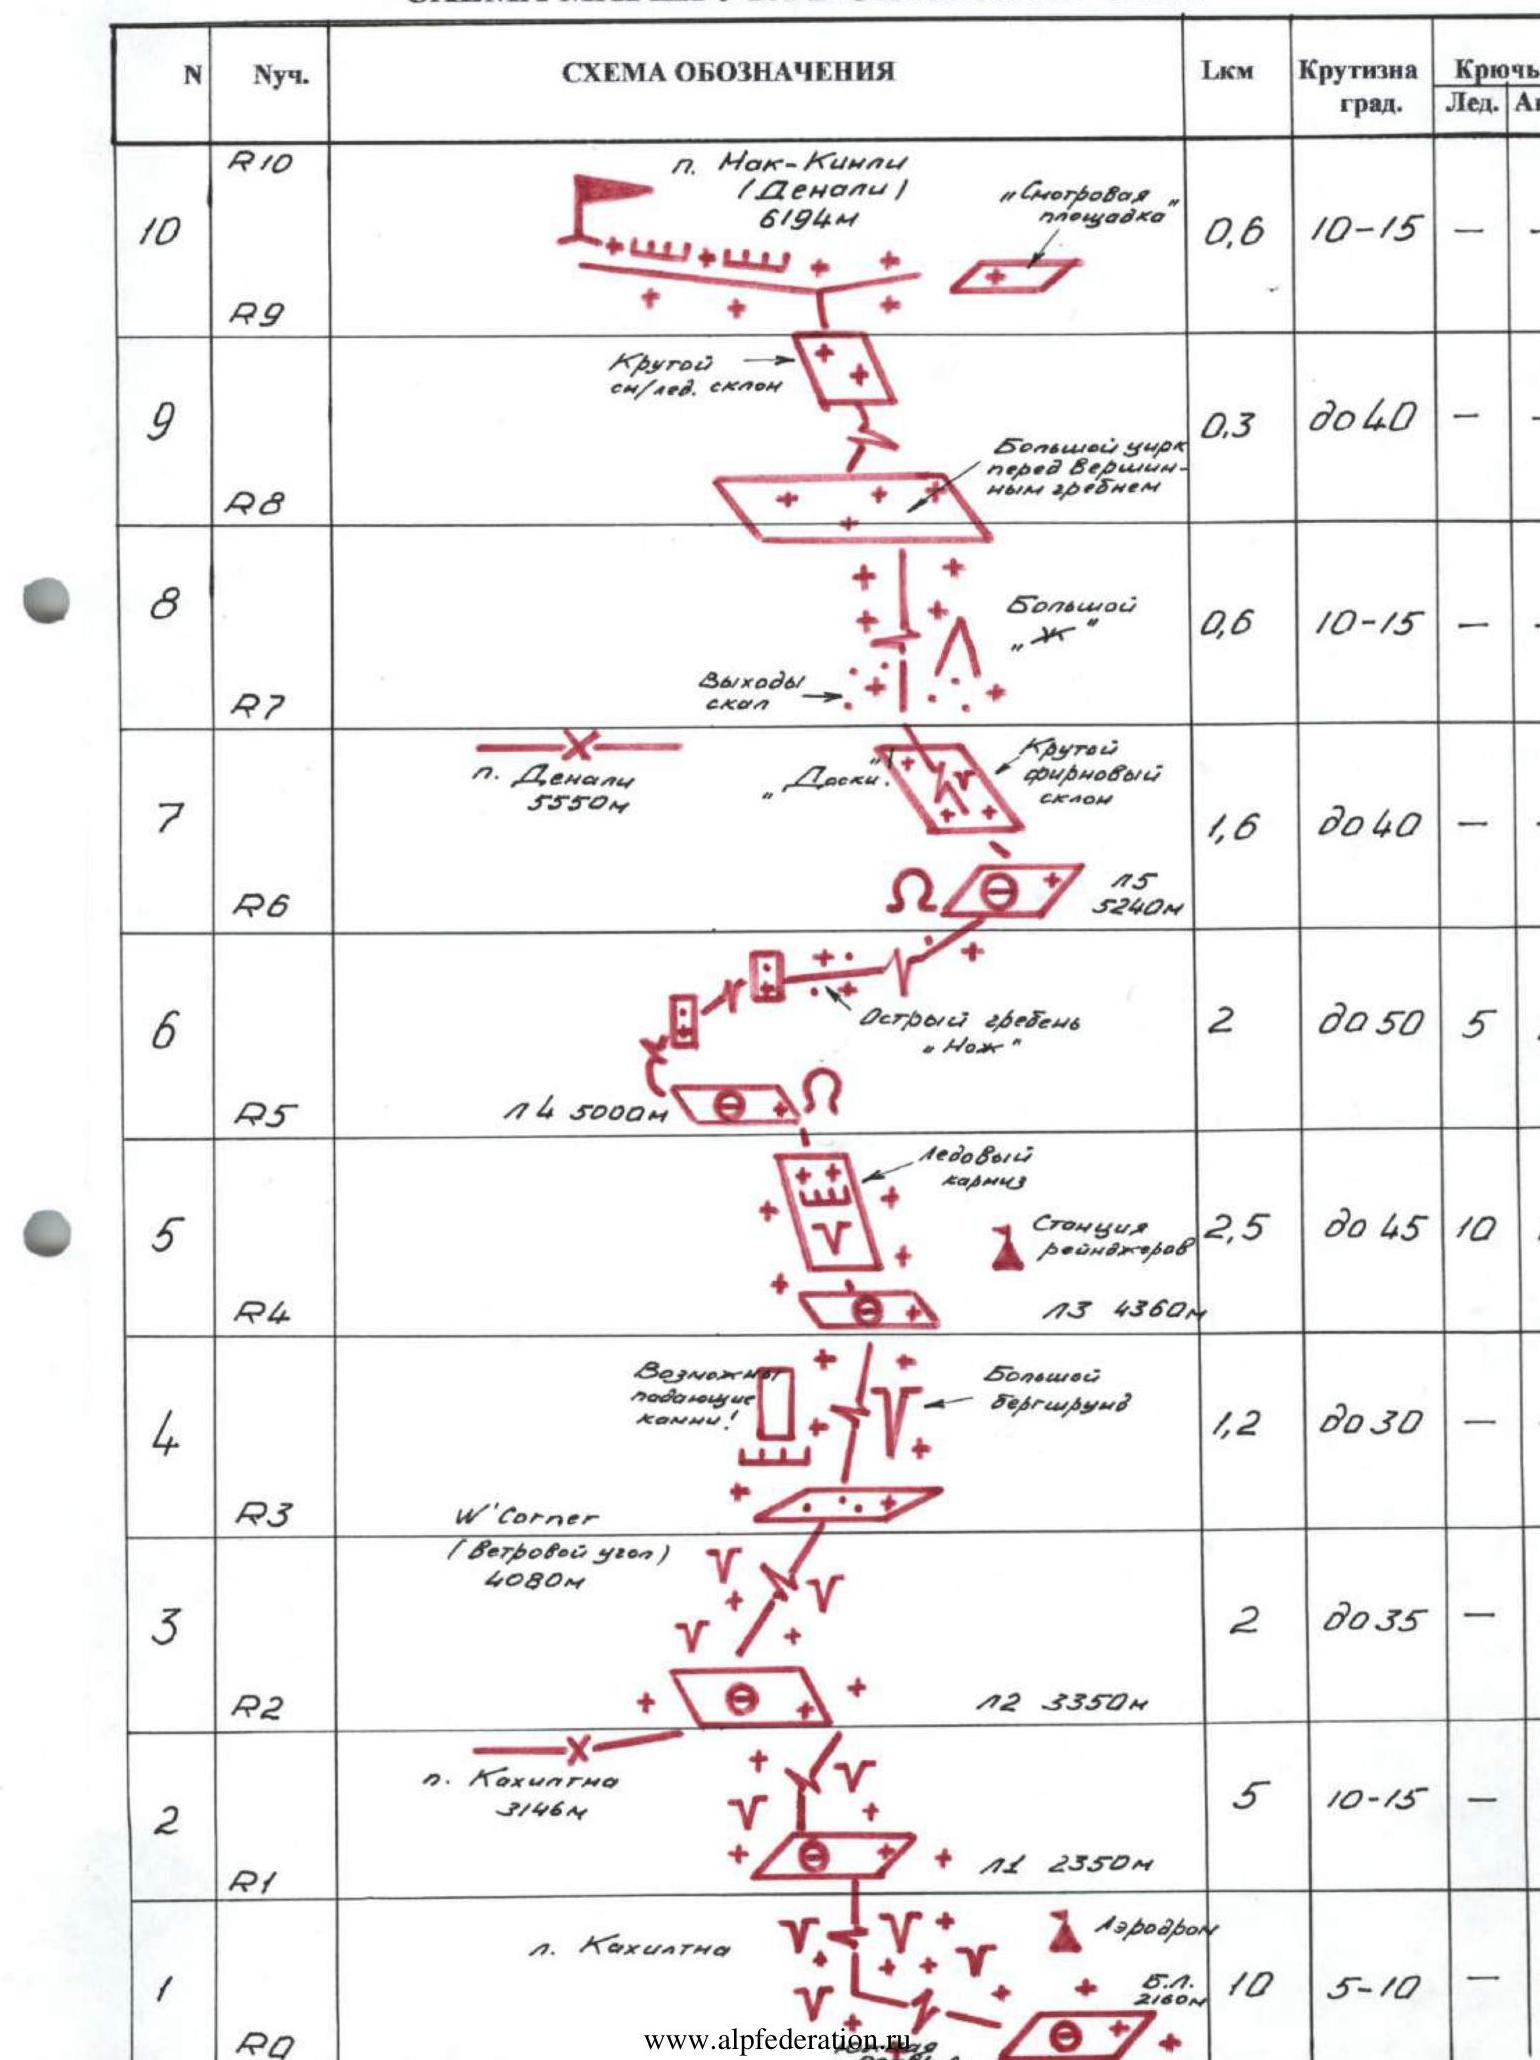 N Nуч. СХЕМА ОБОЗНАЧЕНИЯ Lкм Крутизна град. Крючь
Лед.
R10
10
R9
п. Мак-Кинли
(Денали)
6194м
„Смотровая
площадка"
0,6 10-15 —
9
R8
Крутой
сн/лед. склон
Большой цирк
перед Вершин-
ным гребнем
0,3 до 40 —
8
R7
Большой
„Ж"
Выходы
скал
0,6 10-15 —
7
R6
п. Денали
5550м
„Доски"
Крутой
фирновый
склон
Л5
5240м
1,6 до 40 —
6
R5
Острый гребень
„Нож"
Л4 5000м
2 до 50 5
5
R4
Ледовый
карниз
Станция
рейнджеров
Л3 4360м
2,5 до 45 10
4
R3
Возможны
падающие
камни!
Большой
бергшрунд
1,2 до 30 —
W'Corner
(Ветровой угол)
4080м
3
R2
Л2 3350м
2 до 35 —
2
R1
п. Кахилтна
3146м
Л1 2350м
5 10-15 —
1
R0
л. Кахилтна
Аэродром
Б.Л.
2160м
10 5-10 —
www.alpfederation.ru